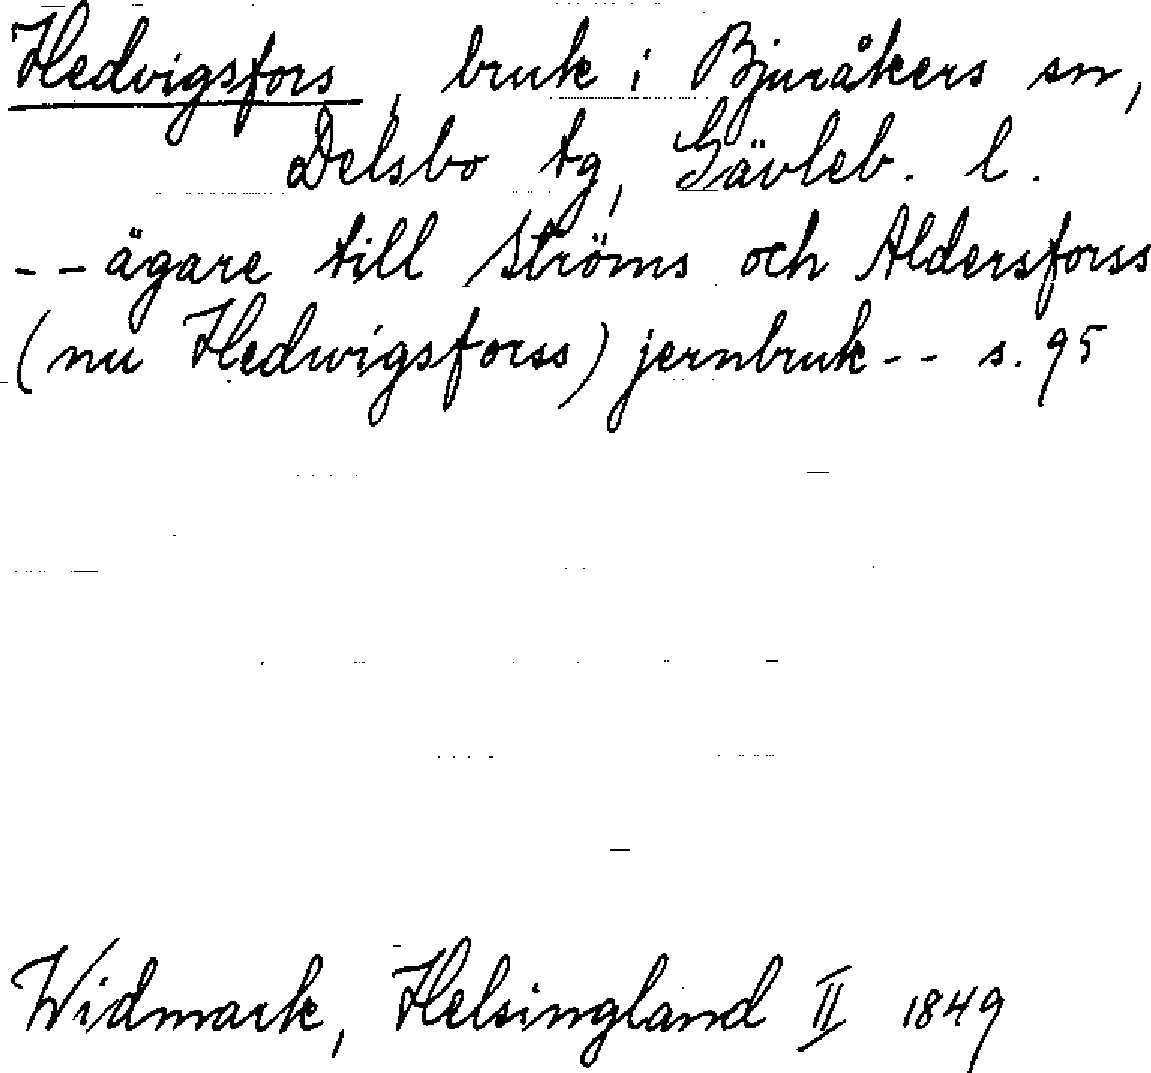 Hedvigsfors, bruk i Bjuråkers sn,
Delsbo tg, Gävleb. l.
-- ägare till Ströms och Aldersforss
(nu Hedwigsforss) jernbruk -- s. 95
Widmark, Helsingland II 1849